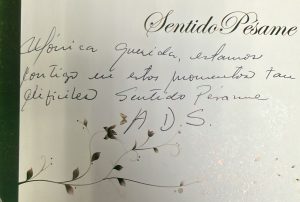 Sentido Pésame
Mónica querida, estamos
contigo en estos momentos tan
difíciles Sentido Pésame
A.D.S.